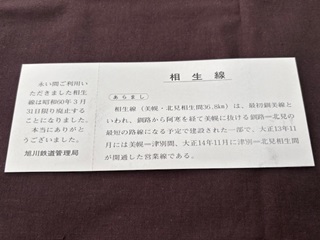 永い間ご利用い
ただきました相生
線は昭和60年3月
31日限り廃止する
ことになりました。
本当にありがと
うございました。
旭川鉄道管理局
相生線
あらまし
相生線(美幌・北見相生間36.8km)は、最初釧美線と
いわれ、釧路から阿寒を経て美幌に抜ける釧路=北見の
最短の路線になる予定で建設された一部で、大正13年11
月には美幌=津別間、大正14年11月に津別=北見相生間
が開通した営業線である。